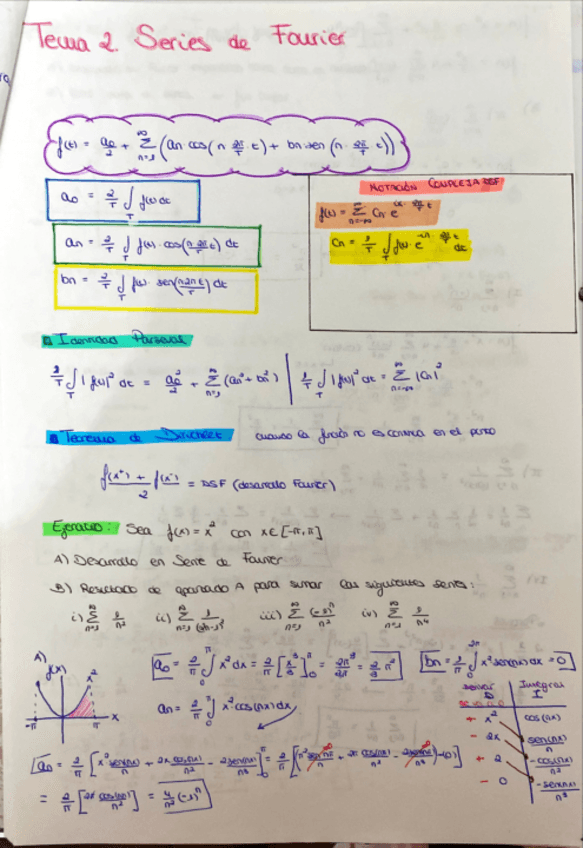 Tema 2. Series de Fourier
f(t) = a₀/2 + ∑_{n=1}^{∞} (an·cos(n 2π/T t) + bn·sen(n·2π/T t))
a₀ = 2/T ∫_T f(t) dt
an = 2/T ∫_T f(t)·cos(n·2π/T t) dt
bn = 2/T ∫_T f(t)·sen(n2πt/T) dt
NOTACIÓN COMPLEJA DSF
f(t) = ∑_{n=-∞}^{∞} Cn·e^{in 2π/T t}
Cn = 1/T ∫_T f(t)·e^{-in 2π/T t} dt
Identidad Parseval
2/T ∫_T |f(t)|² dt = a₀²/2 + ∑_{n=1}^{∞} (an² + bn²) | 1/T ∫_T |f(t)|² dt = ∑_{n=-∞}^{∞} |Cn|²
Teorema de Dirichlet cuando la función no es continua en el punto
f(x⁺) + f(x⁻) / 2 = DSF (desarrollo Fourier)
Ejercicio: Sea f(x) = x² con x∈[-π,π]
A) Desarrollo en Serie de Fourier
B) Resultado de apartado A para sumar las siguientes series:
i) ∑_{n=1}^{∞} 1/n² ii) ∑_{n=1}^{∞} 1/(2n-1)² iii) ∑_{n=1}^{∞} (-1)ⁿ/n² iv) ∑_{n=1}^{∞} 1/n⁴
A) f(x) x² -π π x
a₀ = 2/π ∫_0^π x² dx = 2/π [x³/3]_0^π = 2π³/3π = 2/3 π²
an = 2/π ∫_0^π x² cos(nx) dx
x² sen(nx) dx = 0
D Integral I
+ x² cos(nx)
- 2x sen(nx)/n
+ 2 -cos(nx)/n²
- 0 -sen(nx)/n³
= 4/n² (-1)ⁿ